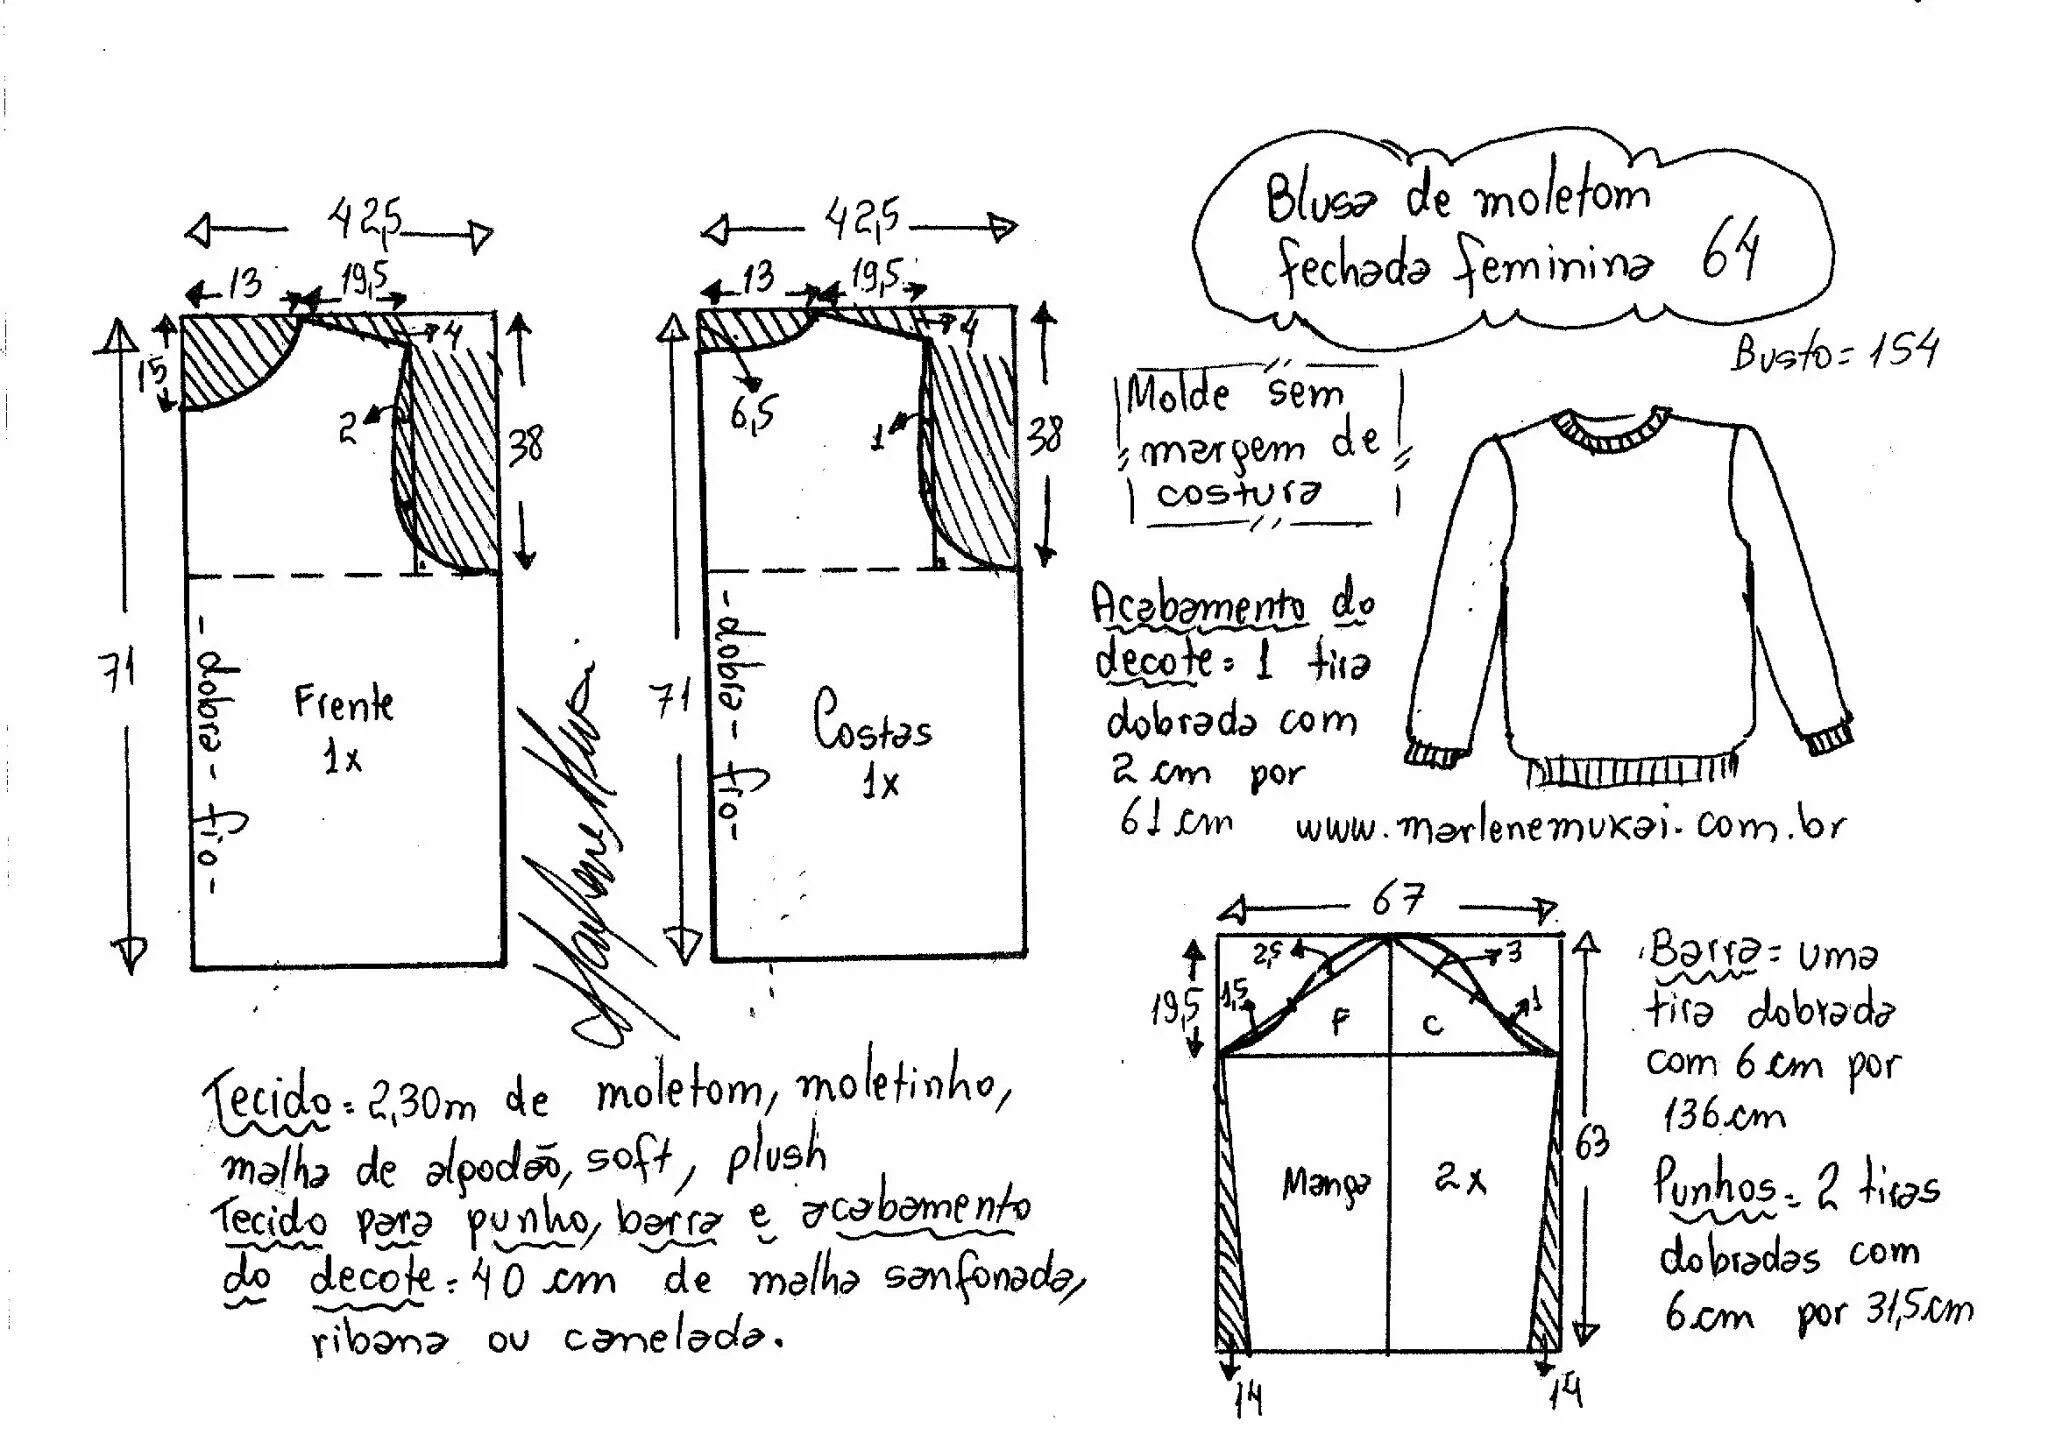 Blusa de moletom
fechada feminina 64
Busto = 154
Molde sem
margem de
costura
42,5
13
19,5
4
15
2
38
71
- dobra - fio -
Frente
1x
42,5
13
19,5
4
6,5
1
38
71
- dobra - fio -
Costas
1x
Acabamento do
decote = 1 tira
dobrada com
2 cm por
61 cm
www.marlenemukai.com.br
67
2,5
3
19,5
1,5
1
F
C
63
Manga
2x
14
14
Barra = uma
tira dobrada
com 6 cm por
136 cm
Punhos = 2 tiras
dobradas com
6 cm por 31,5 cm
Tecido = 2,30m de moletom, moletinho,
malha de algodão, soft, plush
Tecido para punho, barra e acabamento
do decote = 40 cm de malha sanfonada,
ribana ou canelada.